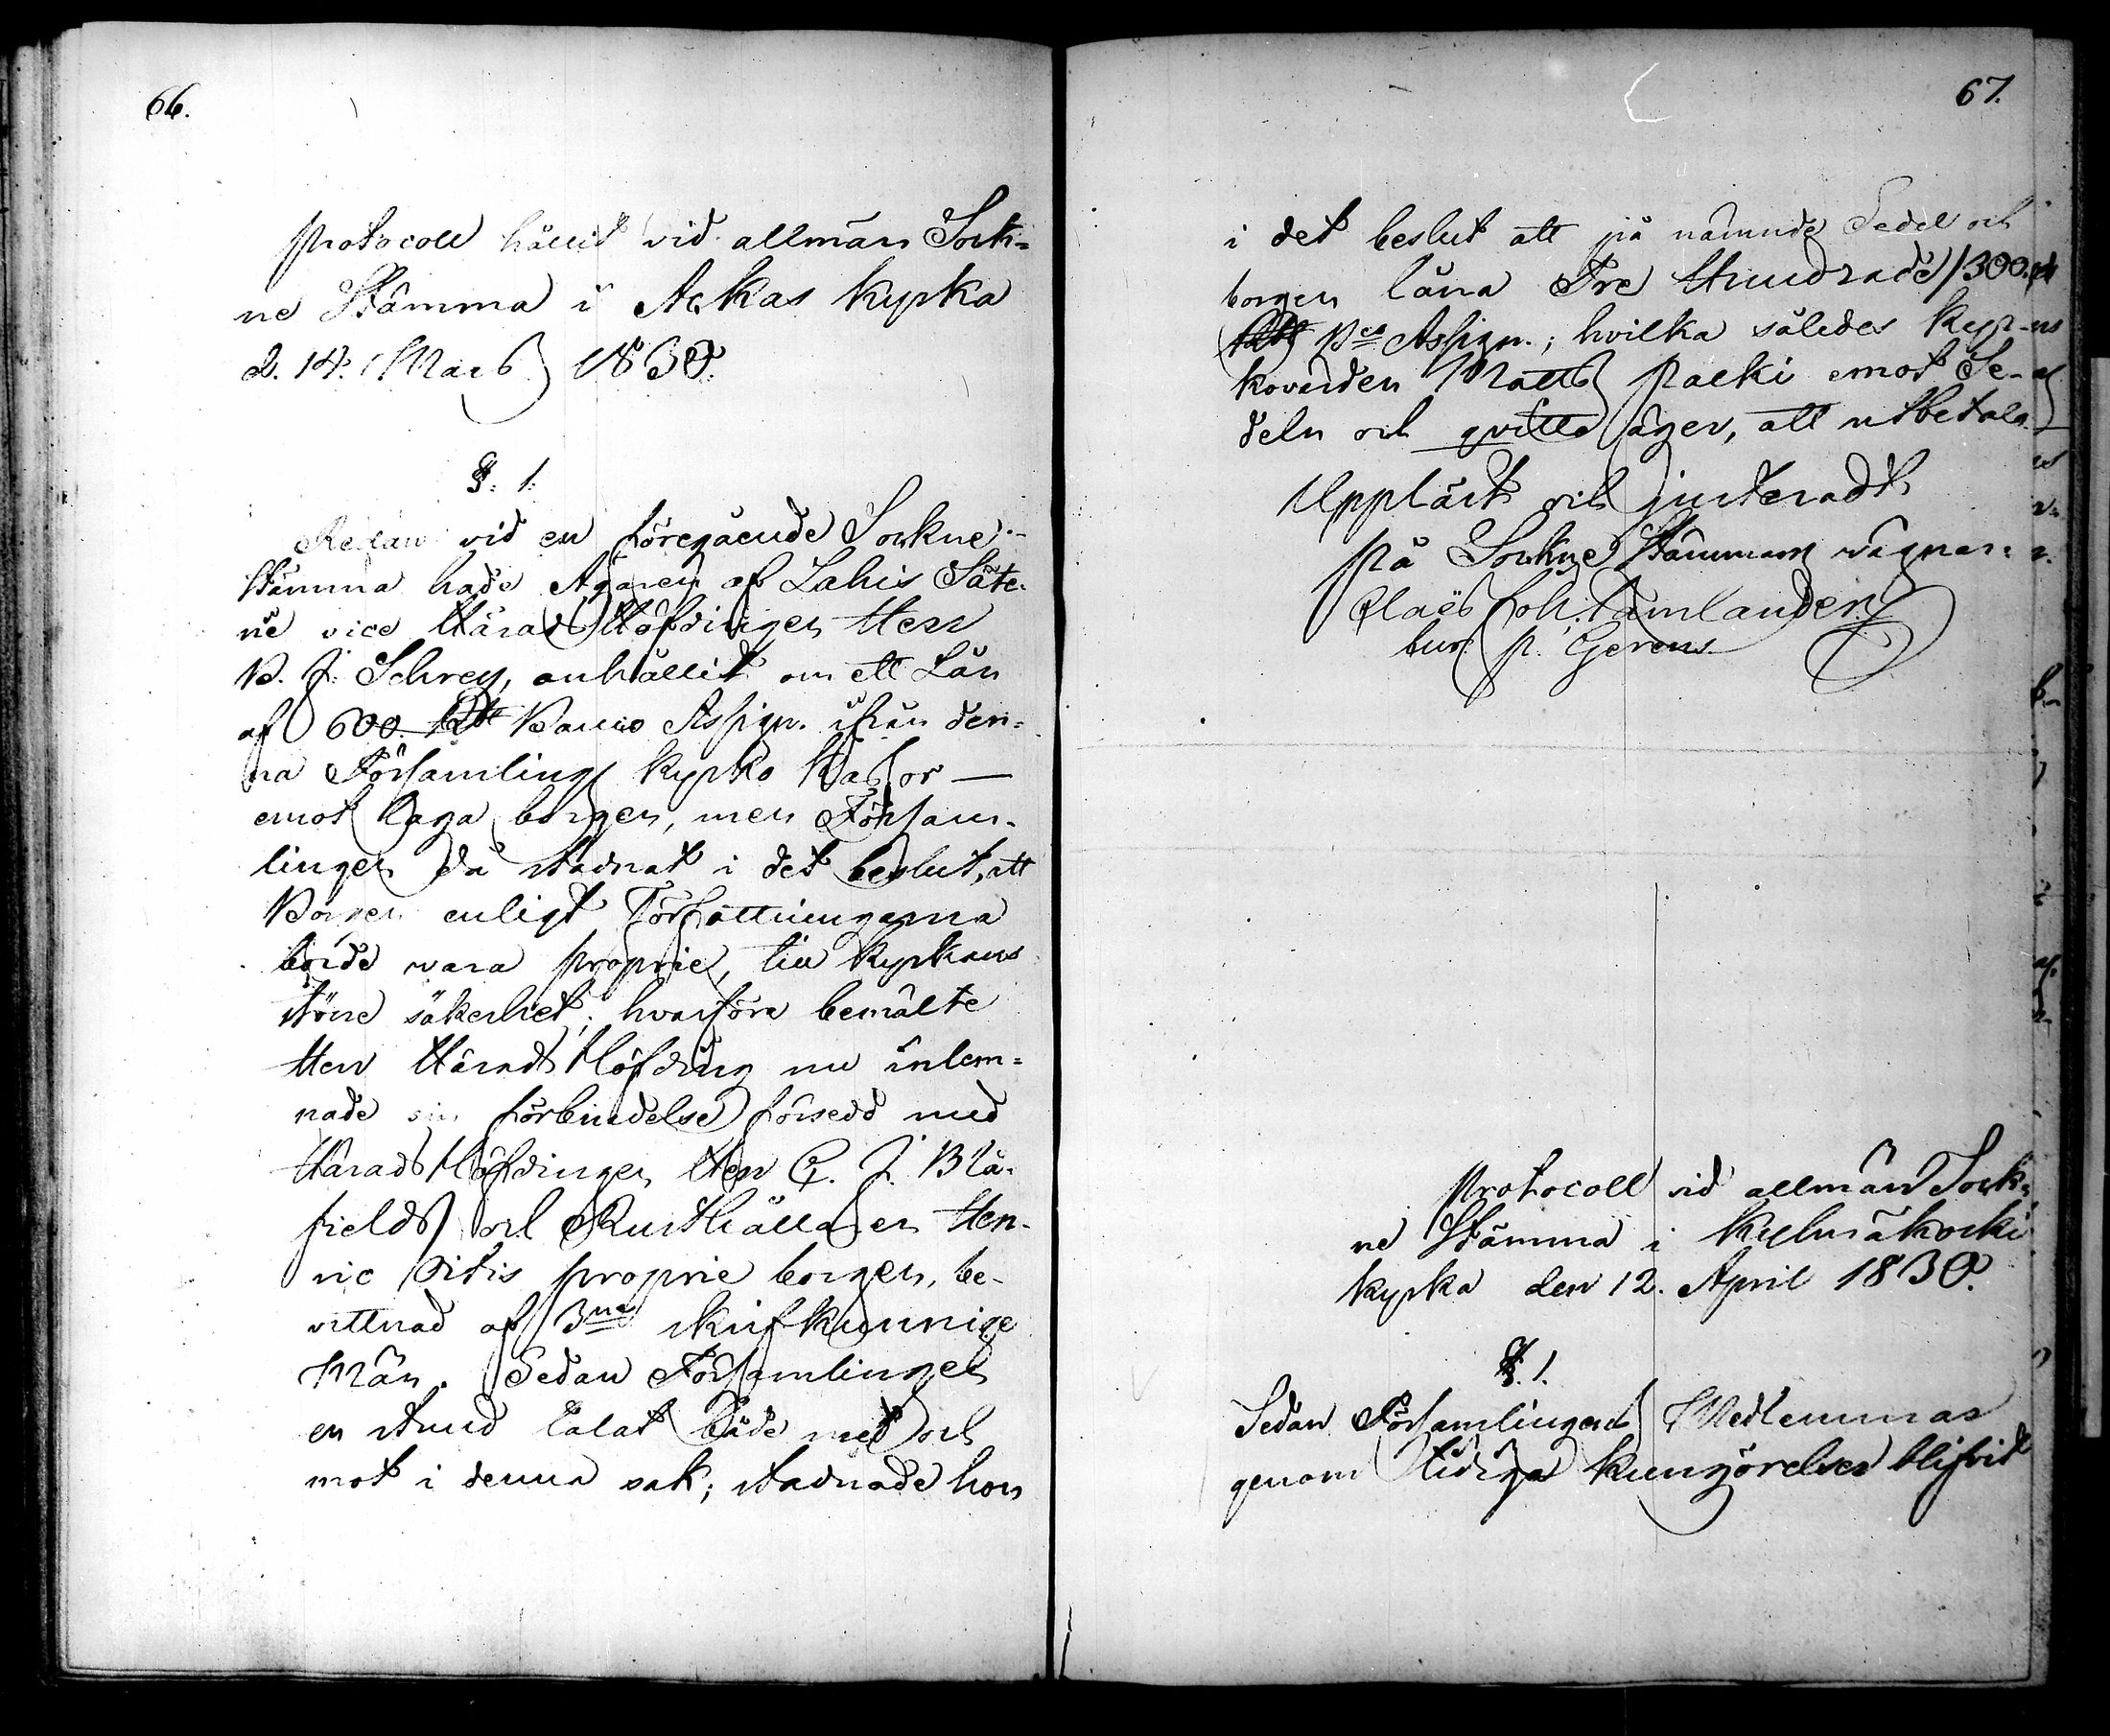 66.
Protocoll hållit vid allmän Sock=
ne Stämma i Ackas Kyrka
d. 14. Marts 1830.
§. 1.
Redan vid en föregående Sockne
Stämma hade Ägaren af Lahis Säte-
ri vice Härads Höfdingen Herr
B. J. Schrey, anhållit om ett Lån
af 600 Rdr Banco Assign. ifrån den=
na Församlings Kyrko Kassor —
emot laga borgen, men Försam-
lingen då stadnat i det beslut, att
Borgen enligt Författningarna
borde vara proprie, till Kyrkans
större säkerhet; hvarföre bemälte
Herr Härads Höfding nu inlem=
nade sin förbindelse försedd med
Härads Höfdingen Herr C. J. Blå-
fields och Rusthållaren Hen-
ric Sitis proprie borgen, be-
vittnad af 3ne skrifkunnige
Män. Sedan Församlingen
en stund talat både med och
mot i denna sak; stadnade hon
67.
i det beslut att på nämnde Sedel och
borgen låna Tre Hundrade /300.
Rdr Bco Assign.; hvilka således Kyr-
kovärden Matts Packi emot Se-
deln och qvitto äger, att utbetala
Uppläst och justeradt
på Sockne Stämmans vägnar:
Claës Joh. Tamlander
cur. p. Gerens
Protocoll vid allmän Sock=
ne Stämma i Kylmäkoski
Kyrka den 12. April 1830.
§. 1.
Sedan Församlingens Medlemmar
genom tidiga kungörelser blifvit